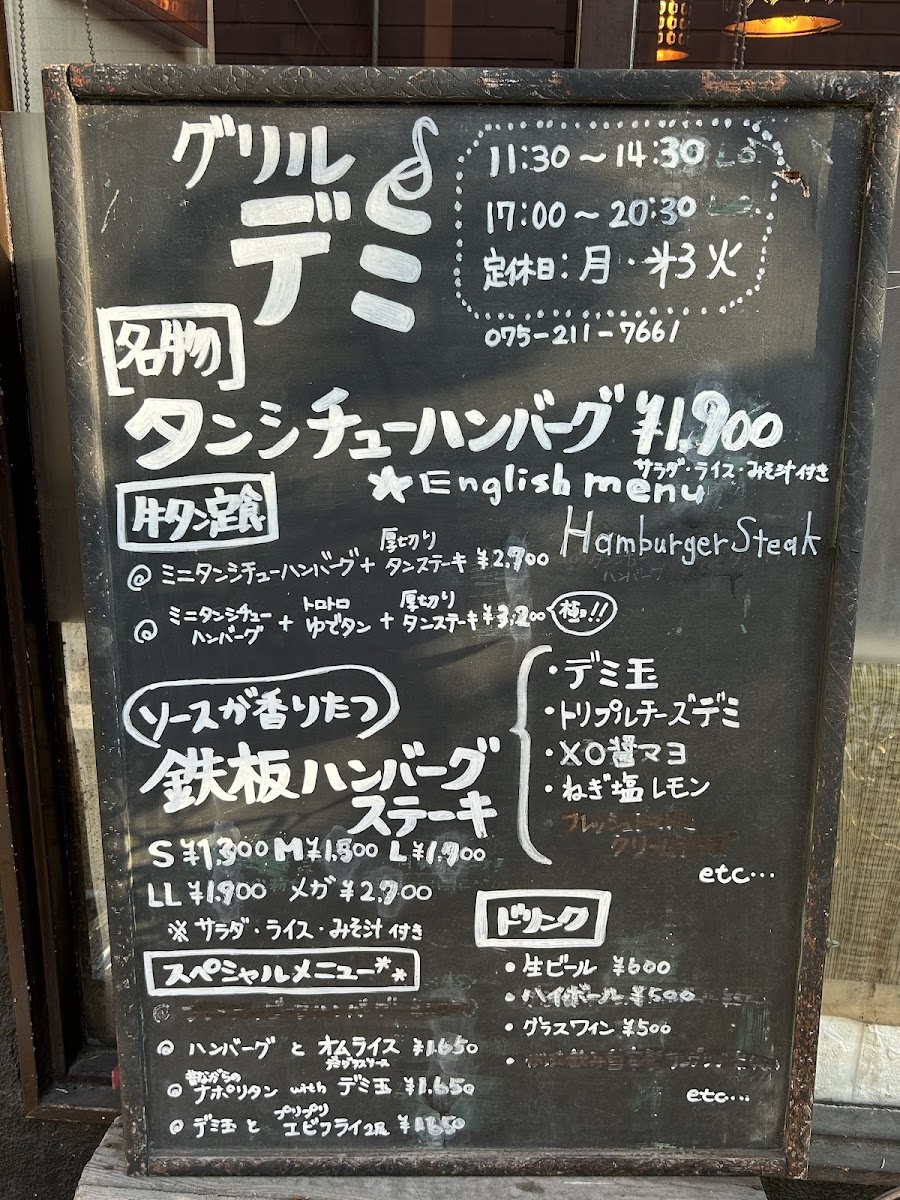 グリル
デミ
11:30～14:30
17:00～20:30
定休日：月・第3火
075-211-7661
名物
タンシチューハンバーグ ¥1,900
サラダ・ライス・みそ汁付き
*English menu
Hamburger Steak
牛タン定食
@ ミニタンシチューハンバーグ + 厚切り タンステーキ ¥2,900
@ ミニタンシチューハンバーグ + トロトロ ゆでタン + 厚切り タンステーキ ¥3,200 極!!
ソースが香りたつ
鉄板ハンバーグ
ステーキ
S ¥1,300 M ¥1,500 L ¥1,700
LL ¥1,900 メガ ¥2,700
※サラダ・ライス・みそ汁付き
・デミ玉
・トリプルチーズデミ
・XO醤マヨ
・ねぎ塩レモン
etc…
スペシャルメニュー**
@ ハンバーグ と オムライス ¥1,650
デミグラスソース
@ 昔ながらの ナポリタン with デミ玉 ¥1,650
@ デミ玉と プリプリ エビフライ2尾
ドリンク
・生ビール ¥600
・ハイボール ¥500
・グラスワイン ¥500
etc…